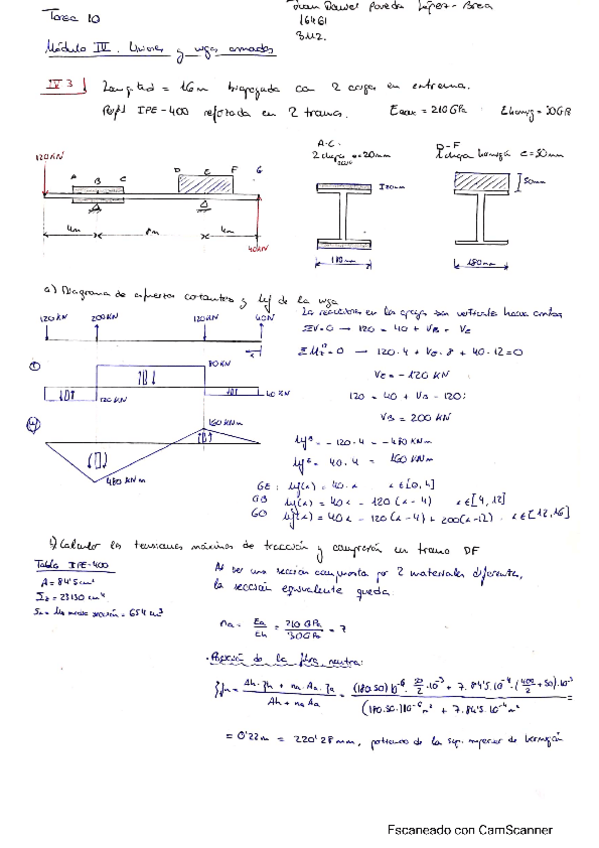 Tarea 10
Juan Daniel Poveda López-Brea
16461
3M2.
Módulo IV. Uniones y vigas armadas
IV 3 Longitud = 16m biapoyada con 2 cargas en extremo.
Perfil IPE-400 reforzada en 2 tramos. Eacero = 210 GPa Ehormig = 30GPa
A-C.
2 chapas e=20mm
D-F
1 chapa hormigón e=50mm
120KN
A B C
D E F G
4m 8m 4m
40KN
180mm
50mm
180mm
a) Diagrama de esfuerzos cortantes y Mf de la viga
120KN 200KN 120KN 40N
Las reacciones en los apoyos son verticales hacia
ΣV=0 → 120 = 40 + VB + VE
=0 → 120·4 + VE·8 + 40·12=0
VE = -120 KN
120 = 40 + VB - 120;
VB = 200 KN
80KN
120KN
40KN
160KNm
480KNm
= -120·4 = -480KNm
= 40·4 = 160KNm
GE: Mf(x) = 40·x x∈[0,4]
Mf(x) = 40x - 120(x-4) x∈[4,12]
Mf(x) = 40x - 120(x-4) + 200(x-12). x∈[12,16]
b) Calcular las tensiones máximas de tracción y compresión en tramo DF
Tabla IPE-400
A = 84'5cm²
= 23130 cm⁴
Al ser una sección compuesta por 2 materiales diferentes,
la sección equivalente queda
na = Ea/Eh = 210 GPa/30GPa = 7
· Posición de la fibra neutra:
= (180·50)10⁻⁶ · 50/2 ·10⁻³ + 7·84'5·10⁻⁴·(400/2 + 50)·10⁻³
Ah + na Aa
(180·50)10⁻⁶m² + 7·84'5·10⁻⁴m²
= 0'22m = 220'28mm, partiendo de la sup. superior de hormigón
Escaneado con CamScanner